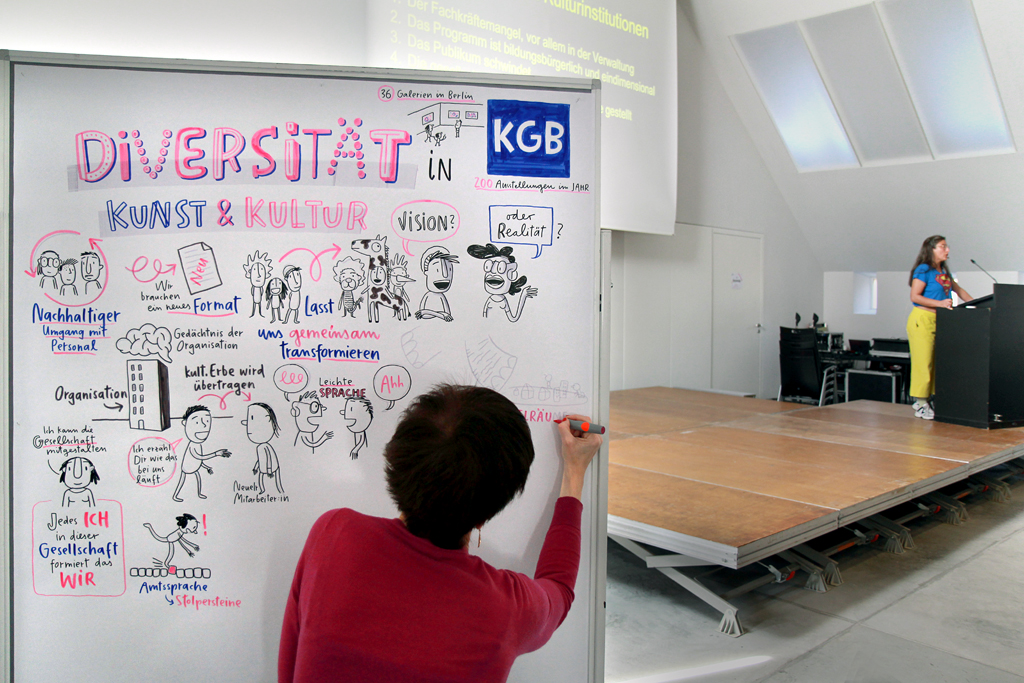 Kulturinstitutionen
1. Der Fachkräftemangel, vor allem in der Verwaltung
2. Das Programm ist bildungsbürgerlich und eindimensional
3. Das Publikum schwindet
gestellt
36 Galerien in Berlin
DiVERSiTÄT
iN
KGB
200 Ausstellungen im JAHR
KUNST & KULTUR
ViSiON?
oder
Realität?
Neu
Wir
brauchen
ein neues Format
Nachhaltiger
Umgang mit
Personal
Lasst
uns gemeinsam
transformieren
Gedächtnis der
Organisation
Organisation
kult. Erbe wird
übertragen
Leichte
SPRACHE
Ahh
Ich kann die
Gesellschaft
mitgestalten
Ich erzähl
Dir wie das
bei uns
läuft
Neue:r
Mitarbeiter:in
Jedes ICH
in dieser
Gesellschaft
formiert das
WiR
!
Amtssprache
Stolpersteine